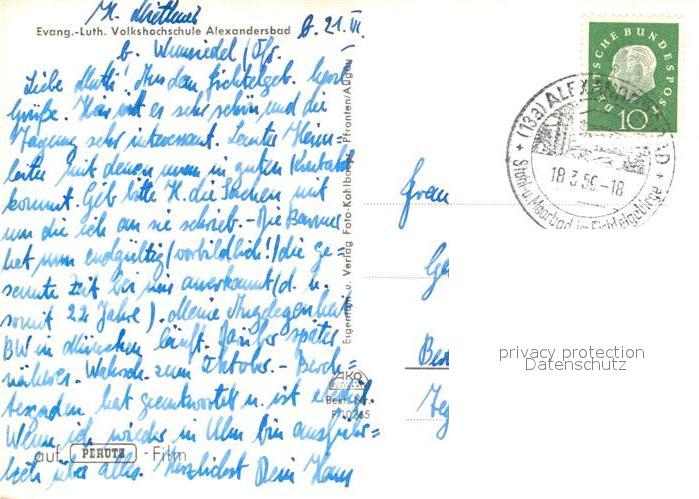 Evang.-Luth. Volkshochschule Alexandersbad
b. 21. VI.
b. Wunsiedel/Ofr.
Liebe Mutti! Aus dem Fichtelgeb.
Grüße. Hier ist es sehr schön und die
Tagung sehr interessant. Lauter Heim-
leiter mit denen man in guten Kontakt
kommt. Geb bitte H. die Sachen mit
um die ich an sie schrieb. - Die Barmer
hat nun endgültig (vorbildlich!) die ge-
samte Zeit bei mir anerkannt (d. h.
somit 22 Jahre). Meine Angelegenheit
BW in München läuft. Darüber später
näheres. Wahrsch. zum Oktober. - Berch=
tesgaden hat geantwortet u. ist
Wenn ich wieder in Ulm bin ausführ=
lich über alles. Herzlichst Dein Hans
auf PERUTZ - Film
Eigentum u. Verlag Foto-Kohlbauer, Pfronten/Allgäu
AKO
Best.-Nr.
DEUTSCHE BUNDESPOST
10
(13a) ALEXANDERSBAD
18.3.59.-18
Stahl-u. Moorbad im Fichtelgebirge
Frau
privacy protection
Datenschutz